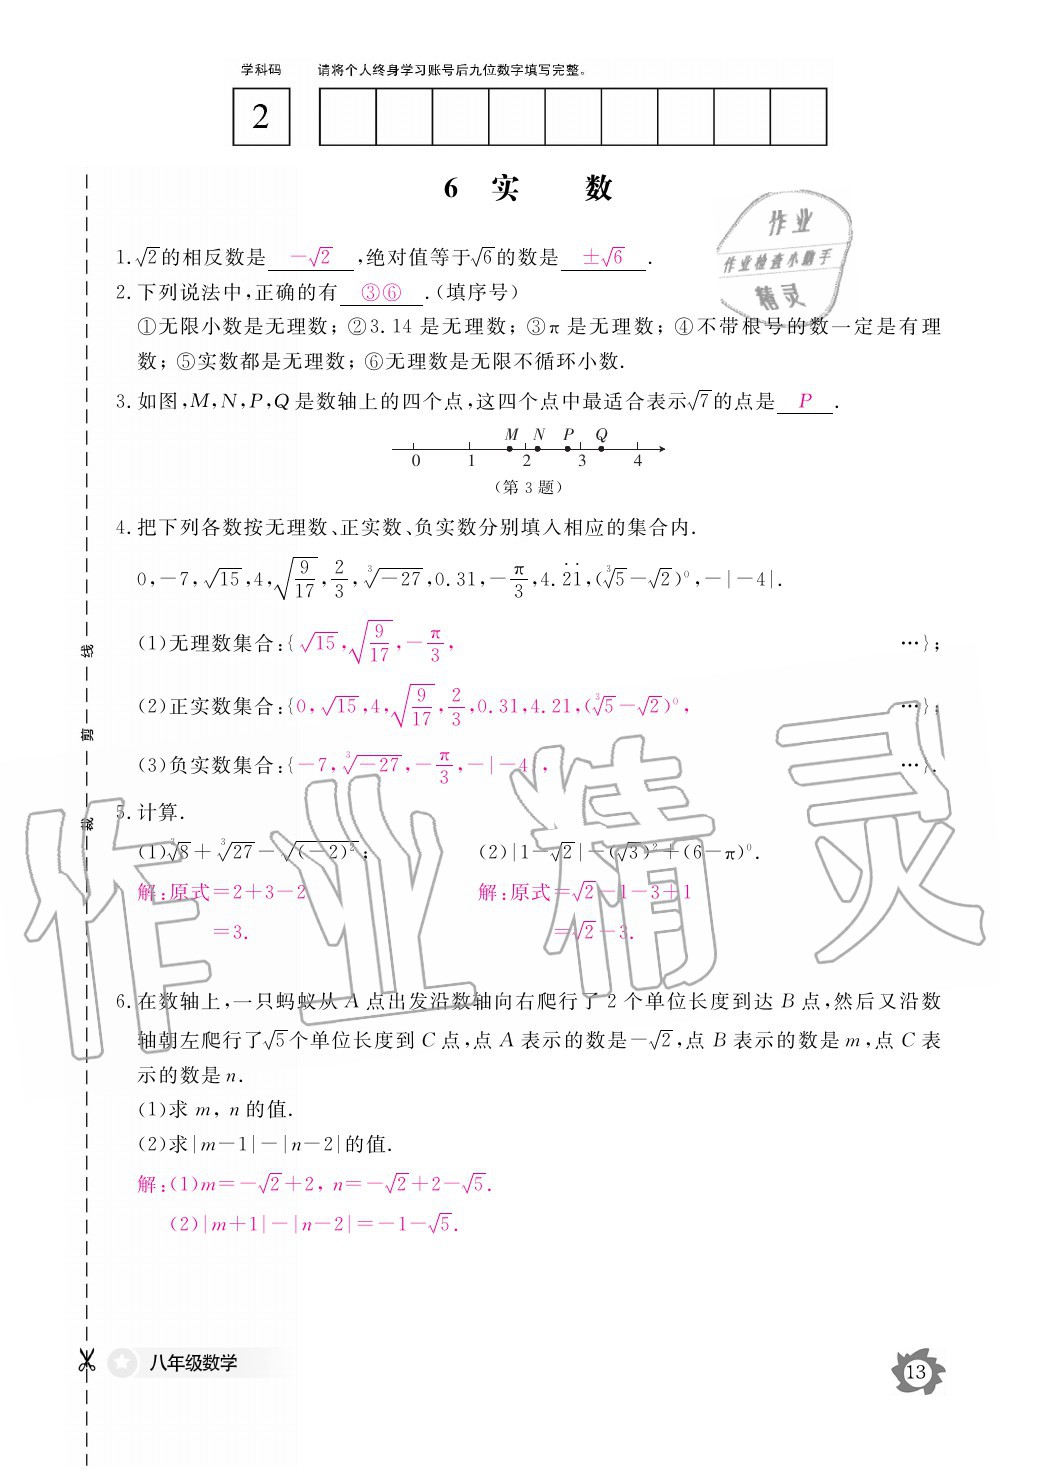 学科码 请将个人终身学习账号后九位数字填写完整。
2
6 实 数
1.√2的相反数是 -√2 ,绝对值等于√6的数是 ±√6 .
2.下列说法中,正确的有 ③⑥ .(填序号)
①无限小数是无理数; ②3.14 是无理数; ③π 是无理数; ④不带根号的数一定是有理
数; ⑤实数都是无理数; ⑥无理数是无限不循环小数.
3.如图,M,N,P,Q 是数轴上的四个点,这四个点中最适合表示√7的点是 P .
M N P Q
0 1 2 3 4
(第 3 题)
4.把下列各数按无理数、正实数、负实数分别填入相应的集合内.
0,-7,√15,4,√(9/17),2/3,∛-27,0.31,-π/3,4.2̇1̇,(∛5-√2)⁰,-|-4|.
(1)无理数集合:{ √15,√(9/17),-π/3, …};
(2)正实数集合:{0,√15,4,√(9/17),2/3,0.31,4.21,(∛5-√2)⁰, …};
(3)负实数集合:{-7,∛-27,-π/3,-|-4|, …}.
5.计算.
(1)∛8+∛27-√(-2)²; (2)|1-√2|-(√3)²+(6-π)⁰.
解:原式=2+3-2 解:原式=√2-1-3+1
=3. =√2-3.
6.在数轴上,一只蚂蚁从 A 点出发沿数轴向右爬行了 2 个单位长度到达 B 点,然后又沿数
轴朝左爬行了√5个单位长度到 C 点,点 A 表示的数是-√2,点 B 表示的数是 m,点 C 表
示的数是 n.
(1)求 m, n 的值.
(2)求|m-1|-|n-2|的值.
解:(1)m=-√2+2, n=-√2+2-√5.
(2)|m+1|-|n-2|=-1-√5.
八年级数学
13
裁 剪 线
作业
作业检查小助手
精灵
作业精灵